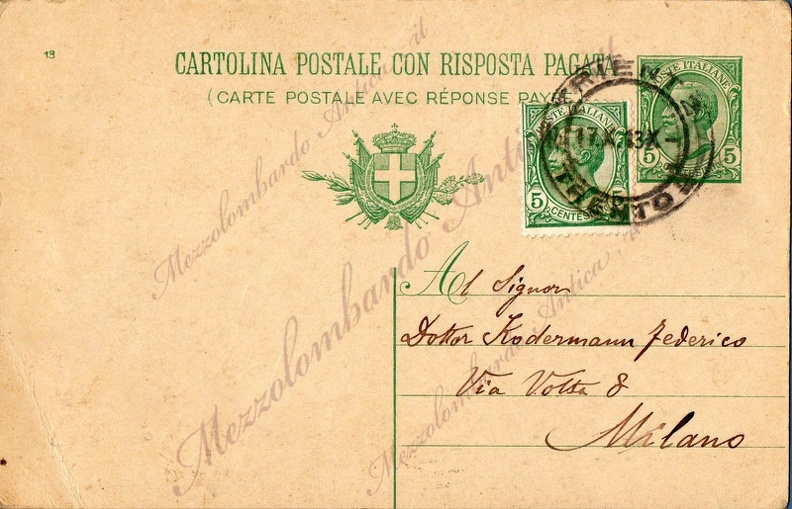 13
CARTOLINA POSTALE CON RISPOSTA PAGATA
(CARTE POSTALE AVEC RÉPONSE PAYÉE)
POSTE ITALIANE
5 5
CENTESIMI
POSTE ITALIANE
5
CENTESIMI
TRIENT
17.X.13
TRENTO
Al Signor
Dottor Kodermann Federico
Via Volta 8
Milano
Mezzolombardo Antica
Mezzolombardo Antica
Mezzolombardo Antica